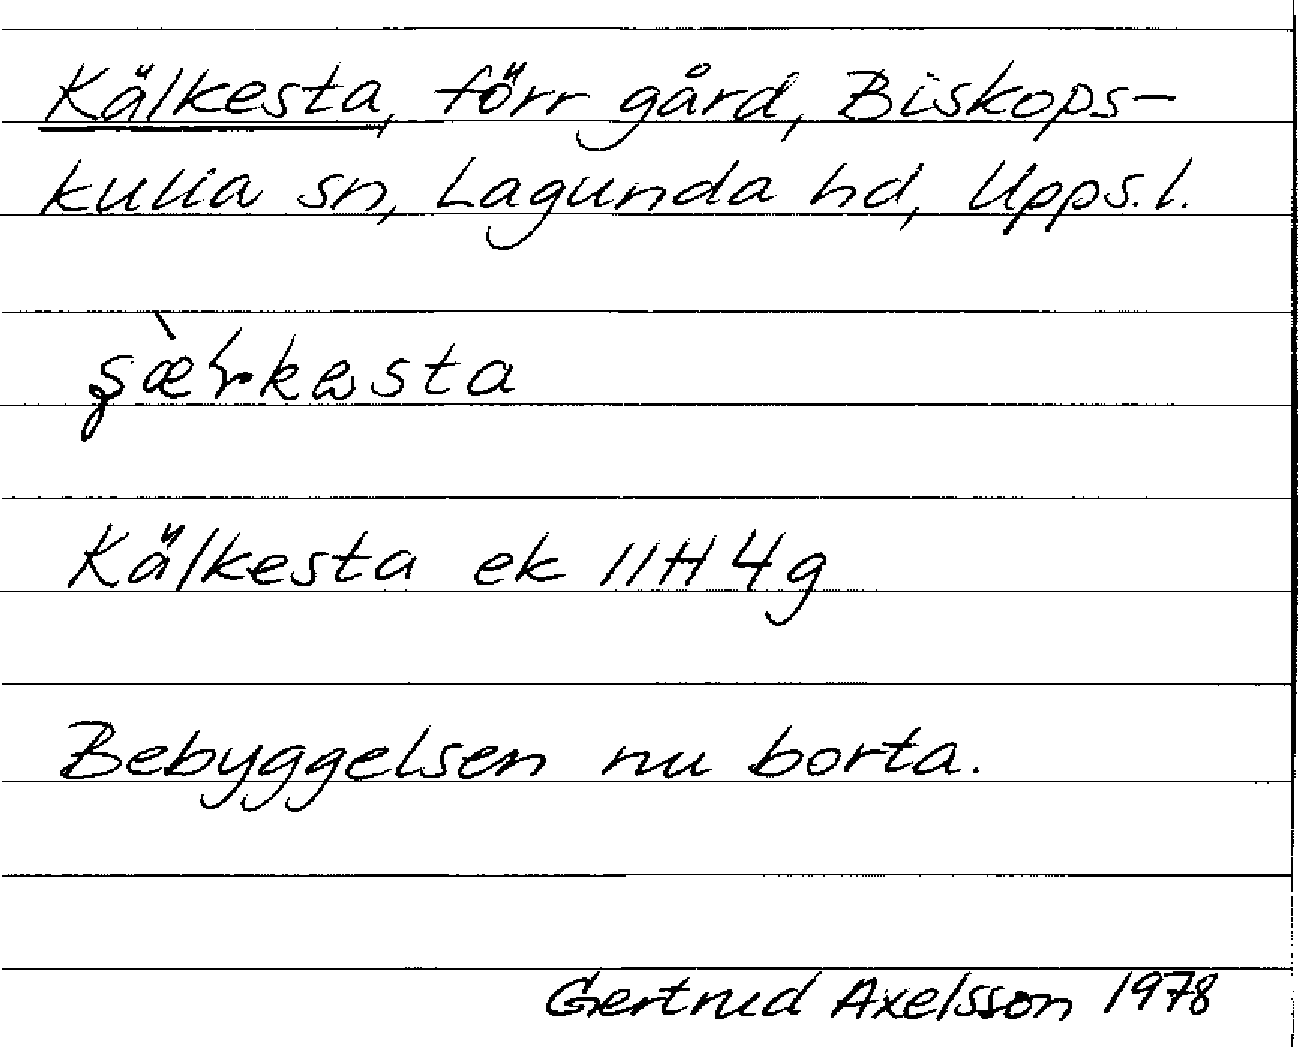 Kälkesta, förr gård, Biskops-
kulla sn, Lagunda hd, Upps. l.
Kälkesta ek 11H4g
Bebyggelsen nu borta.
Gertrud Axelsson 1978